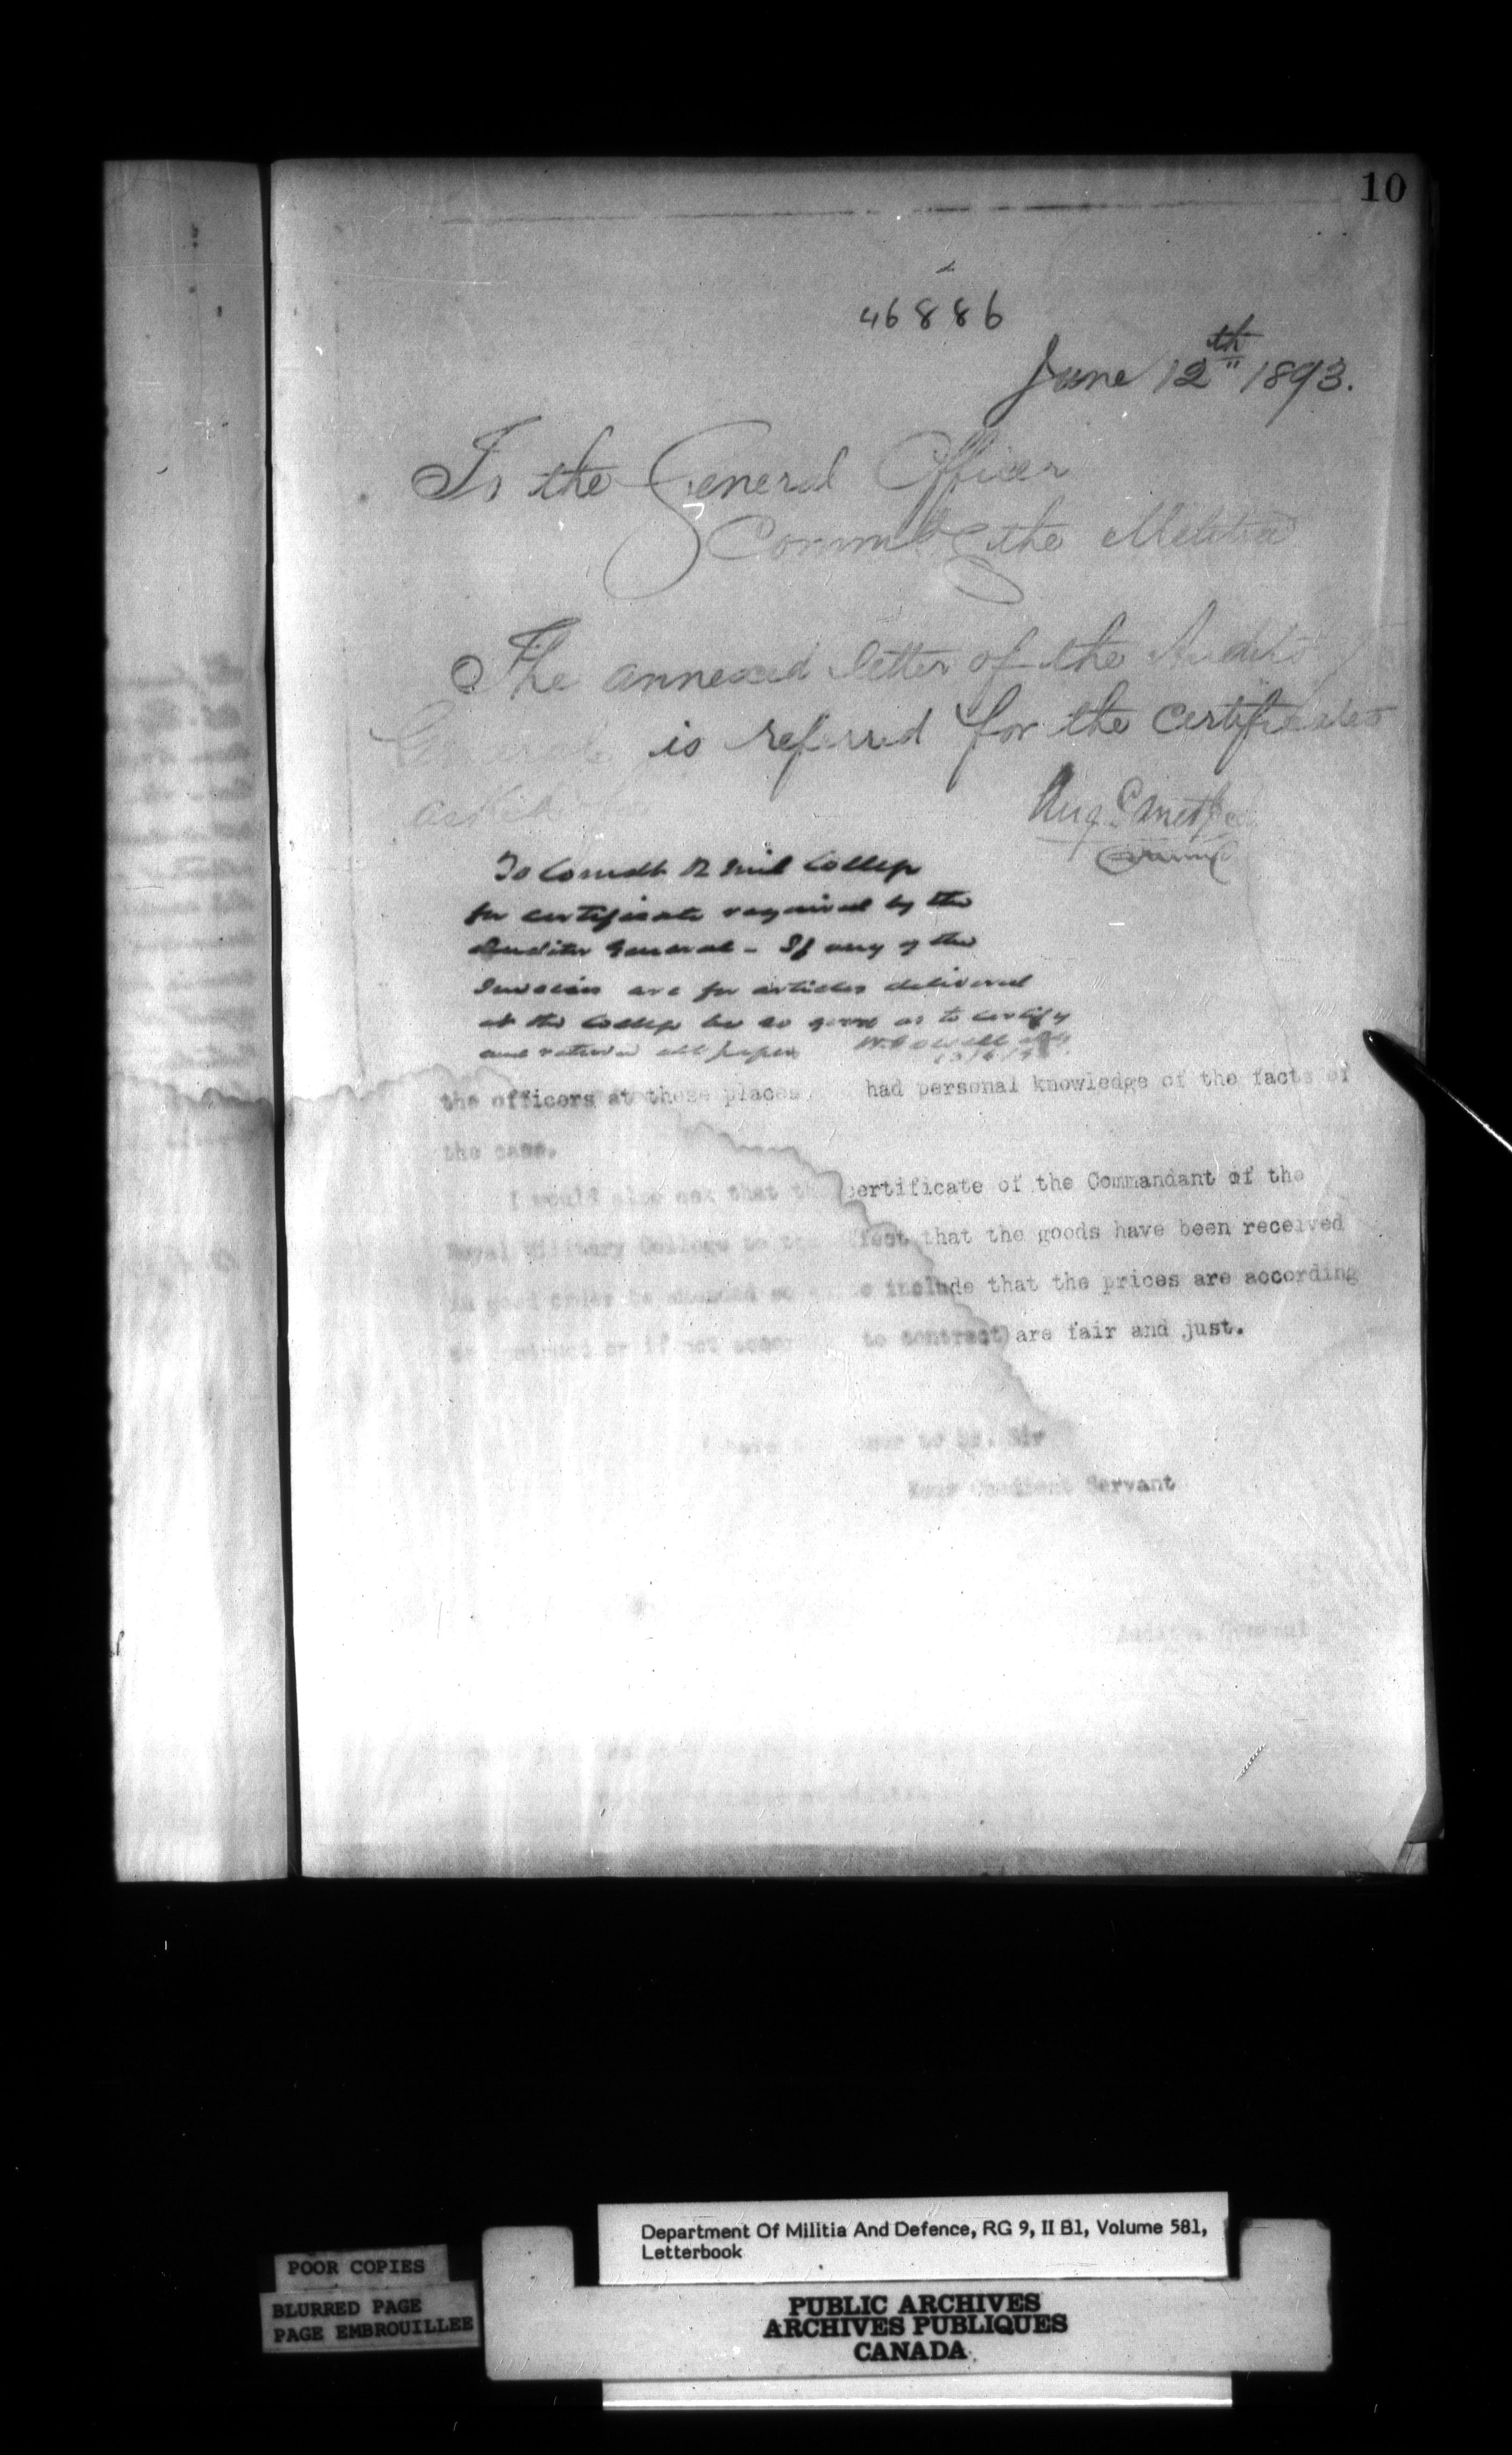 10
46886
June 12th 1893.
To the General Officer
Commdg the Militia
The annexed letter of the Auditor
General is referred for the certificates
asked for
Aug Panet Col
To Comdt R Mil College
for certificate required by the
Auditor General - If any of the
Invoices are for articles delivered
at the College be so good as to certify
and return all papers
the officers at these places had personal knowledge of the facts of
the case.
I would also ask that the certificate of the Commandant of the
Royal Military College to the effect that the goods have been received
in good order be amended so as to include that the prices are according
to contract or if not to contract) are fair and just.
I have honor to be, Sir
Your Obedient Servant
Auditor General
Department Of Militia And Defence, RG 9, II B1, Volume 581,
Letterbook
POOR COPIES
BLURRED PAGE
PAGE EMBROUILLEE
PUBLIC ARCHIVES
ARCHIVES PUBLIQUES
CANADA